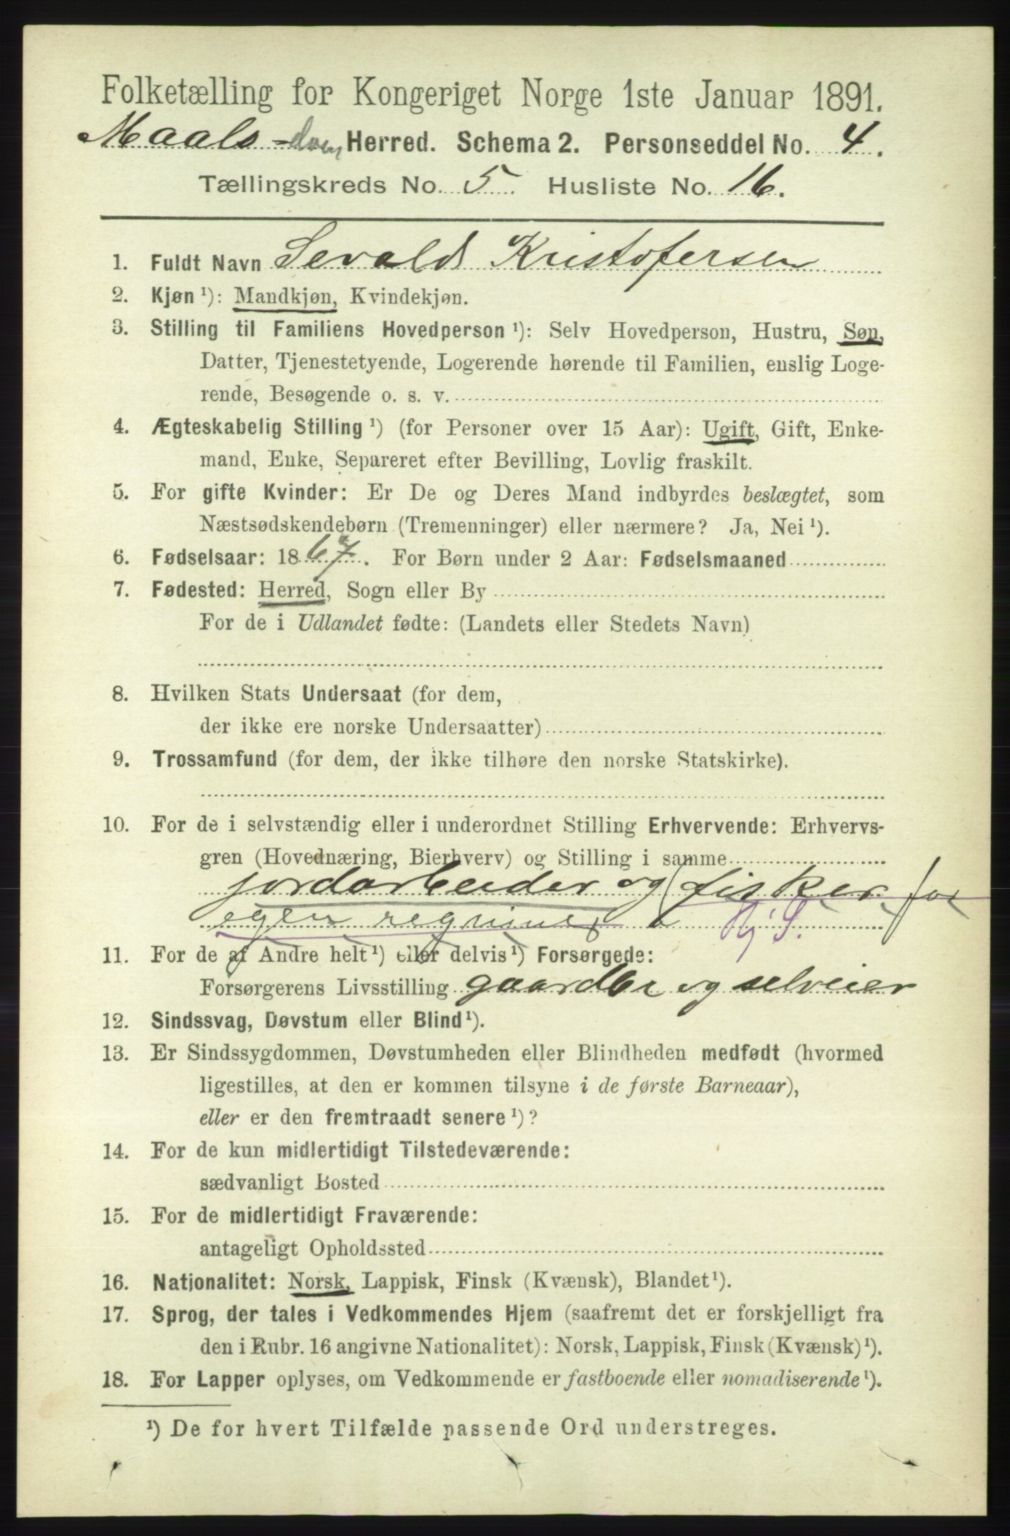 Folketælling for Kongeriget Norge 1ste Januar 1891.
Maals Herred. Schema 2. Personseddel No. 4.
Tællingskreds No. 5. Husliste No. 16.
1. Fuldt Navn Sevald Kristofersen
2. Kjøn ¹): Mandkjøn, Kvindekjøn.
3. Stilling til Familiens Hovedperson ¹): Selv Hovedperson, Hustru, Søn,
Datter, Tjenestetyende, Logerende hørende til Familien, enslig Loge-
rende, Besøgende o. s. v.
4. Ægteskabelig Stilling ¹) (for Personer over 15 Aar): Ugift, Gift, Enke-
mand, Enke, Separeret efter Bevilling, Lovlig fraskilt.
5. For gifte Kvinder: Er De og Deres Mand indbyrdes beslægtet, som
Næstsødskendebørn (Tremenninger) eller nærmere? Ja, Nei ¹).
6. Fødselsaar: 1867. For Børn under 2 Aar: Fødselsmaaned
7. Fødested: Herred, Sogn eller By
For de i Udlandet fødte: (Landets eller Stedets Navn)
8. Hvilken Stats Undersaat (for dem,
der ikke ere norske Undersaatter)
9. Trossamfund (for dem, der ikke tilhøre den norske Statskirke).
10. For de i selvstændig eller i underordnet Stilling Erhvervende: Erhvervs-
gren (Hovednæring, Bierhverv) og Stilling i samme
jordarbeider og (fisker for
egen regning
11. For de af Andre helt ¹) eller delvis ¹) Forsørgede:
Forsørgerens Livsstilling gaardbr og selveier
12. Sindssvag, Døvstum eller Blind ¹).
13. Er Sindssygdommen, Døvstumheden eller Blindheden medfødt (hvormed
ligestilles, at den er kommen tilsyne i de første Barneaar),
eller er den fremtraadt senere ¹)?
14. For de kun midlertidigt Tilstedeværende:
sædvanligt Bosted
15. For de midlertidigt Fraværende:
antageligt Opholdssted
16. Nationalitet: Norsk, Lappisk, Finsk (Kvænsk), Blandet ¹).
17. Sprog, der tales i Vedkommendes Hjem (saafremt det er forskjelligt fra
den i Rubr. 16 angivne Nationalitet): Norsk, Lappisk, Finsk (Kvænsk) ¹).
18. For Lapper oplyses, om Vedkommende er fastboende eller nomadiserende ¹).
¹) De for hvert Tilfælde passende Ord understreges.